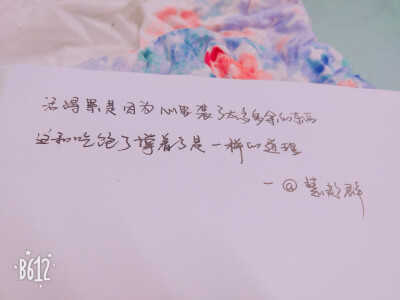 活得累是因为心里装了太多多余的东西
这和吃饱了撑着了是一样的道理
一@慧超群
B612